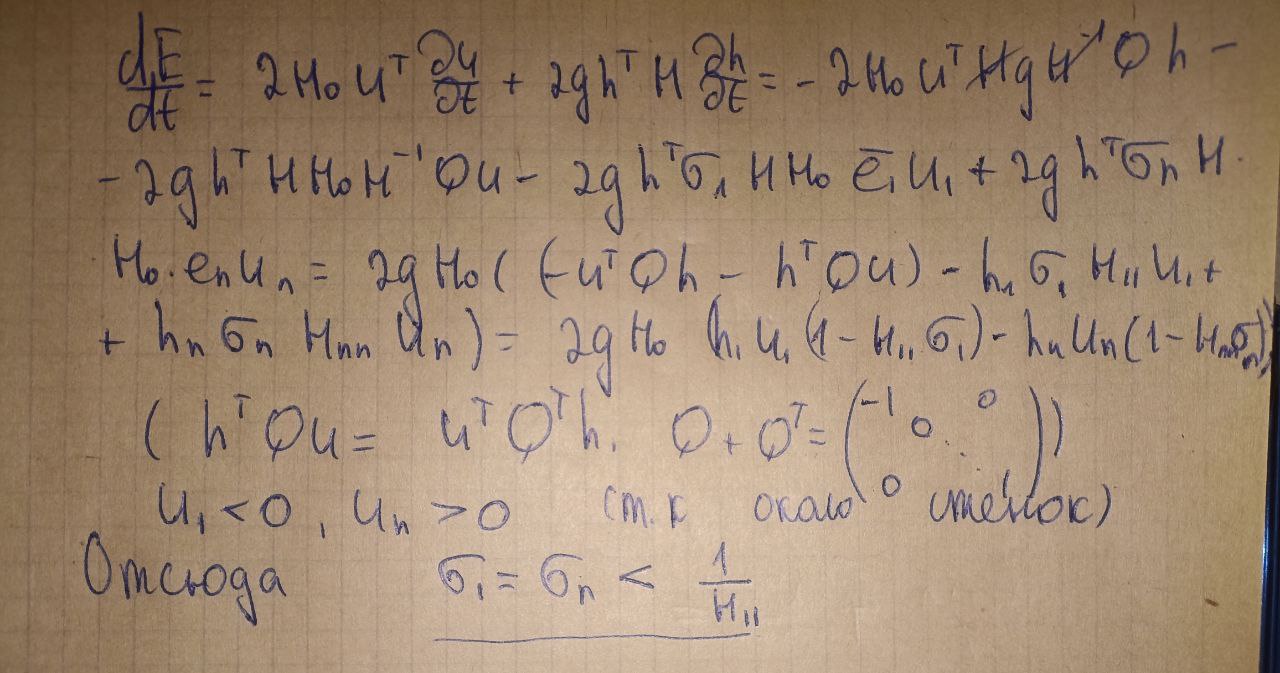 dE/dt = 2H₀uᵀ ∂u/∂t + 2ghᵀH ∂h/∂t = -2H₀uᵀHgH⁻¹Qh -
- 2ghᵀHH₀H⁻¹Qu - 2ghᵀσ₁HH₀e̅₁u₁ + 2ghᵀσ̅ₙH·
H₀·eₙuₙ = 2gH₀((-uᵀQh - hᵀQu) - h₁σ₁H₁₁u₁ +
+ hₙσₙHₙₙuₙ) = 2gH₀(h₁u₁(1-H₁₁σ₁) - hₙuₙ(1-Hₙₙσₙ))
(hᵀQu = uᵀQᵀh. Q+Qᵀ = (-1 0 0 0 1))
u₁ < 0, uₙ > 0 (т.к около стенок)
Отсюда σ₁ = σₙ < 1/H₁₁